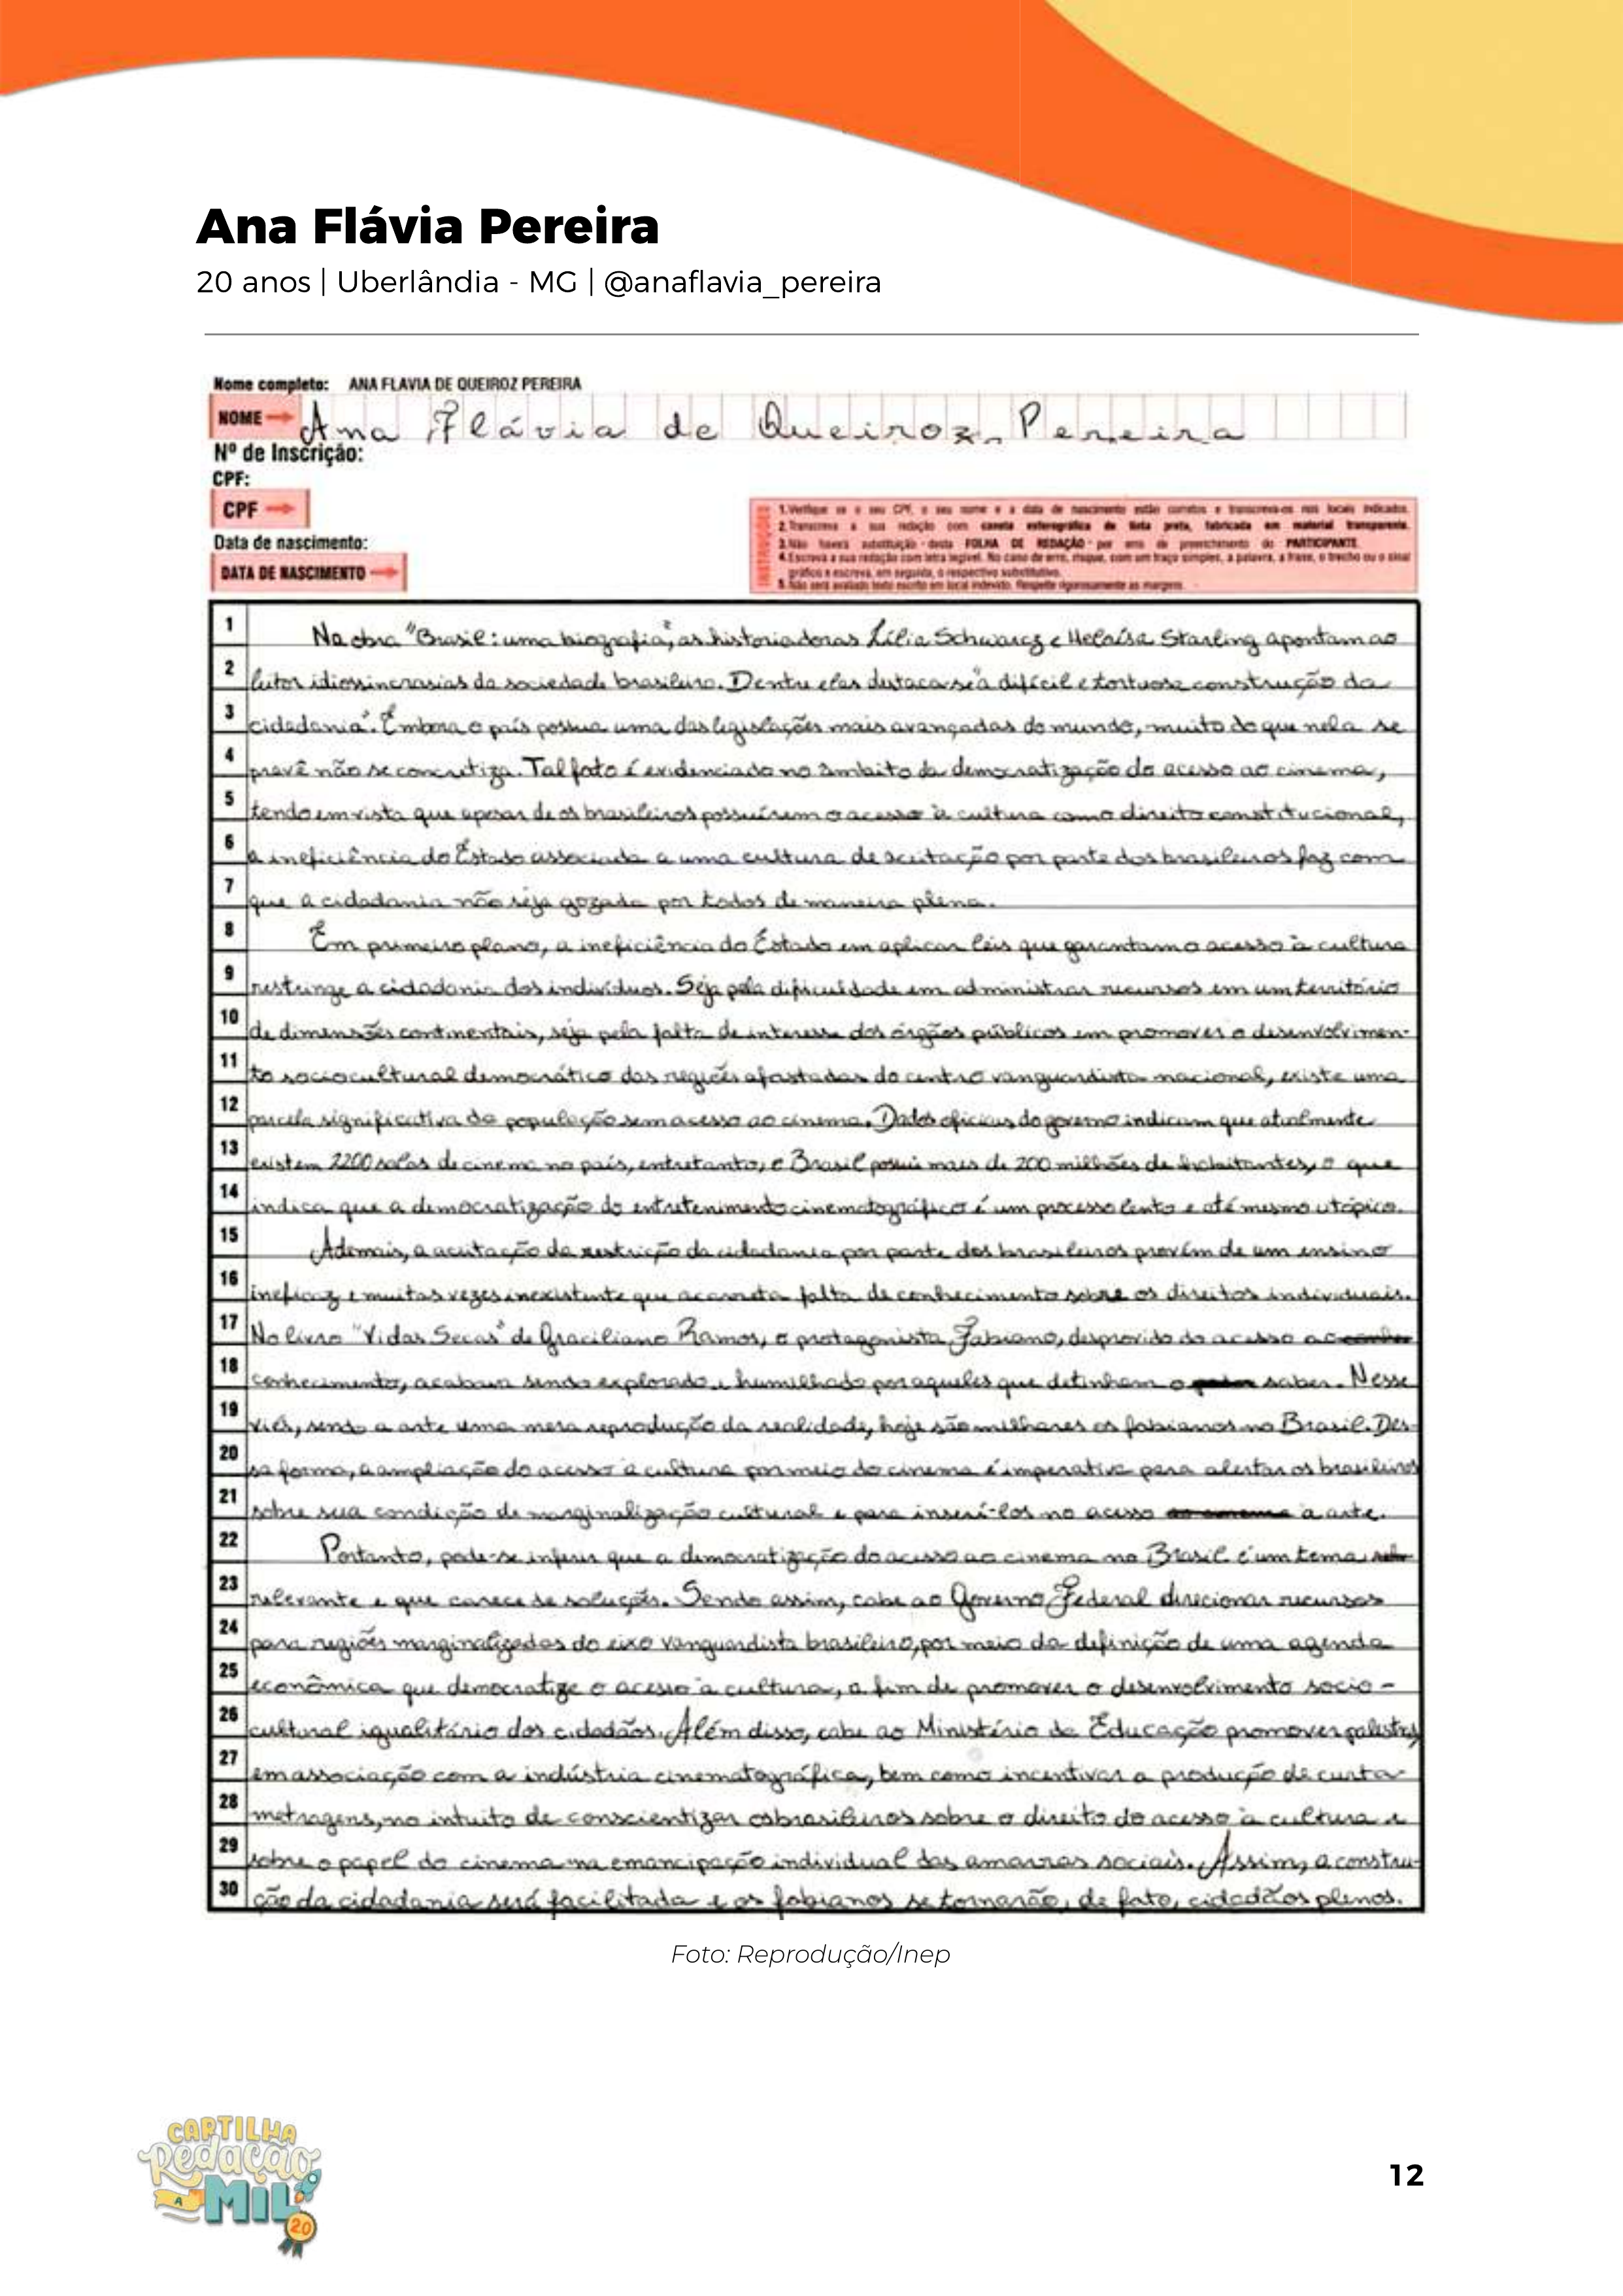 Ana Flávia Pereira
20 anos | Uberlândia - MG | @anaflavia_pereira
Nome completo: ANA FLAVIA DE QUEIROZ PEREIRA
NOME Ana Flávia de Queiroz Pereira
Nº de Inscrição:
CPF:
CPF
Data de nascimento:
DATA DE NASCIMENTO
INSTRUÇÕES
1. Verifique se o seu CPF, o seu nome e a data de nascimento estão corretos e transcreva-os nos locais indicados.
2. Transcreva a sua redação com caneta esferográfica de tinta preta, fabricada em material transparente.
3. Não haverá substituição desta FOLHA DE REDAÇÃO por erro de preenchimento do PARTICIPANTE.
4. Escreva a sua redação com letra legível. No caso de erro, risque, com um traço simples, a palavra, a frase, o trecho ou o sinal
gráfico e escreva, em seguida, o respectivo substitutivo.
5. Não será avaliado texto escrito em local indevido. Respeite rigorosamente as margens.
1 Na obra "Brasil: uma biografia", as historiadoras Lília Schwarcz e Heloísa Starling apontam ao
2 leitor idiossincrasias da sociedade brasileira. Dentre elas destaca-se "a difícil e tortuosa construção da
3 cidadania". Embora o país possua uma das legislações mais avançadas do mundo, muito do que nela se
4 prevê não se concretiza. Tal fato é evidenciado no âmbito da democratização do acesso ao cinema,
5 tendo em vista que apesar de os brasileiros possuírem o acesso à cultura como direito constitucional,
6 a ineficiência do Estado associada a uma cultura de aceitação por parte dos brasileiros faz com
7 que a cidadania não seja gozada por todos de maneira plena.
8 Em primeiro plano, a ineficiência do Estado em aplicar leis que garantam o acesso à cultura
9 restringe a cidadania dos indivíduos. Seja pela dificuldade em administrar recursos em um território
10 de dimensões continentais, seja pela falta de interesse dos órgãos públicos em promover o desenvolvimen-
11 to sociocultural democrático das regiões afastadas do centro vanguardista nacional, existe uma
12 parcela significativa da população sem acesso ao cinema. Dados oficiais do governo indicam que atualmente
13 existem 2200 salas de cinema no país, entretanto, o Brasil possui mais de 200 milhões de habitantes, o que
14 indica que a democratização do entretenimento cinematográfico é um processo lento e até mesmo utópico.
15 Ademais, a aceitação da restrição da cidadania por parte dos brasileiros provém de um ensino
16 ineficaz e muitas vezes inexistente que acarreta falta de conhecimento sobre os direitos individuais.
17 No livro "Vidas Secas" de Graciliano Ramos, o protagonista Fabiano, desprovido do acesso ao
18 conhecimento, acabava sendo explorado e humilhado por aqueles que detinham o saber. Nesse
19 viés, sendo a arte uma mera reprodução da realidade, hoje são milhares os fabianos no Brasil. Des-
20 sa forma, a ampliação do acesso à cultura por meio do cinema é imperativa para alertar os brasileiros
21 sobre sua condição de marginalização cultural e para inserí-los no acesso à arte.
22 Portanto, pode-se inferir que a democratização do acesso ao cinema no Brasil é um tema
23 relevante e que carece de soluções. Sendo assim, cabe ao Governo Federal direcionar recursos
24 para regiões marginalizadas do eixo vanguardista brasileiro, por meio da definição de uma agenda
25 econômica que democratize o acesso à cultura, a fim de promover o desenvolvimento socio-
26 cultural igualitário dos cidadãos. Além disso, cabe ao Ministério da Educação promover palestras,
27 em associação com a indústria cinematográfica, bem como incentivar a produção de curta-
28 metragens, no intuito de conscientizar os brasileiros sobre o direito do acesso à cultura e
29 sobre o papel do cinema na emancipação individual das amarras sociais. Assim, a constru-
30 ção da cidadania será facilitada e os fabianos se tornarão, de fato, cidadãos plenos.
Foto: Reprodução/Inep
CARTILHA
Redação
A MIL
20
12